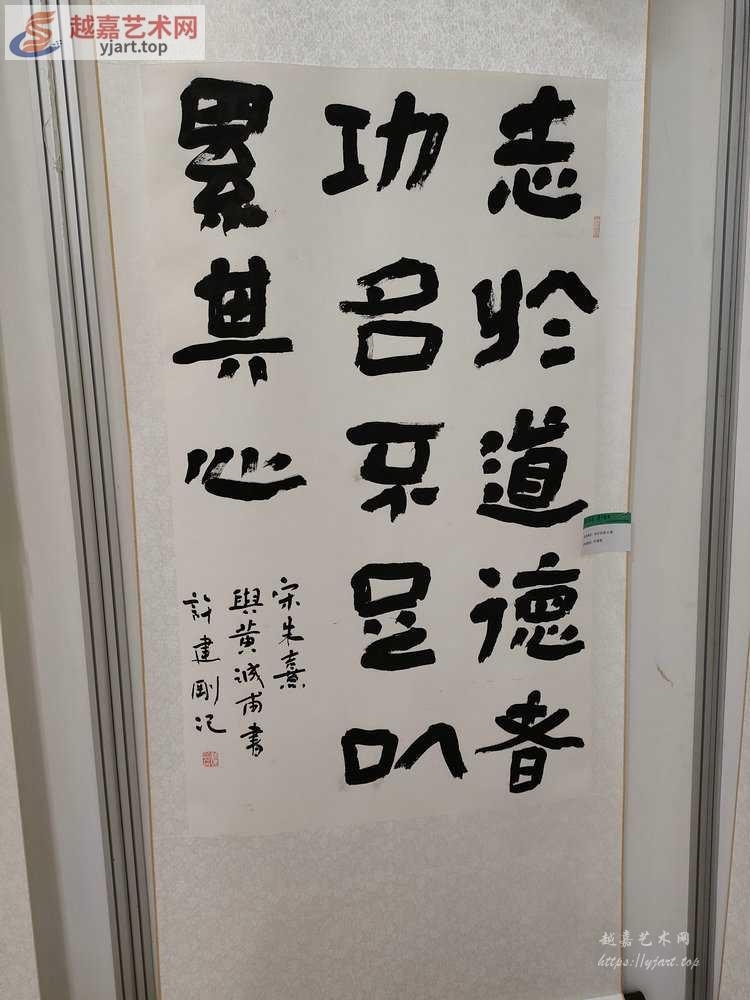 越嘉艺术网
yjart.top
志於道德者
功名不足以
累其心
宋朱熹
與黄誠甫書
許建剛記
越嘉艺术网
https://yjart.top